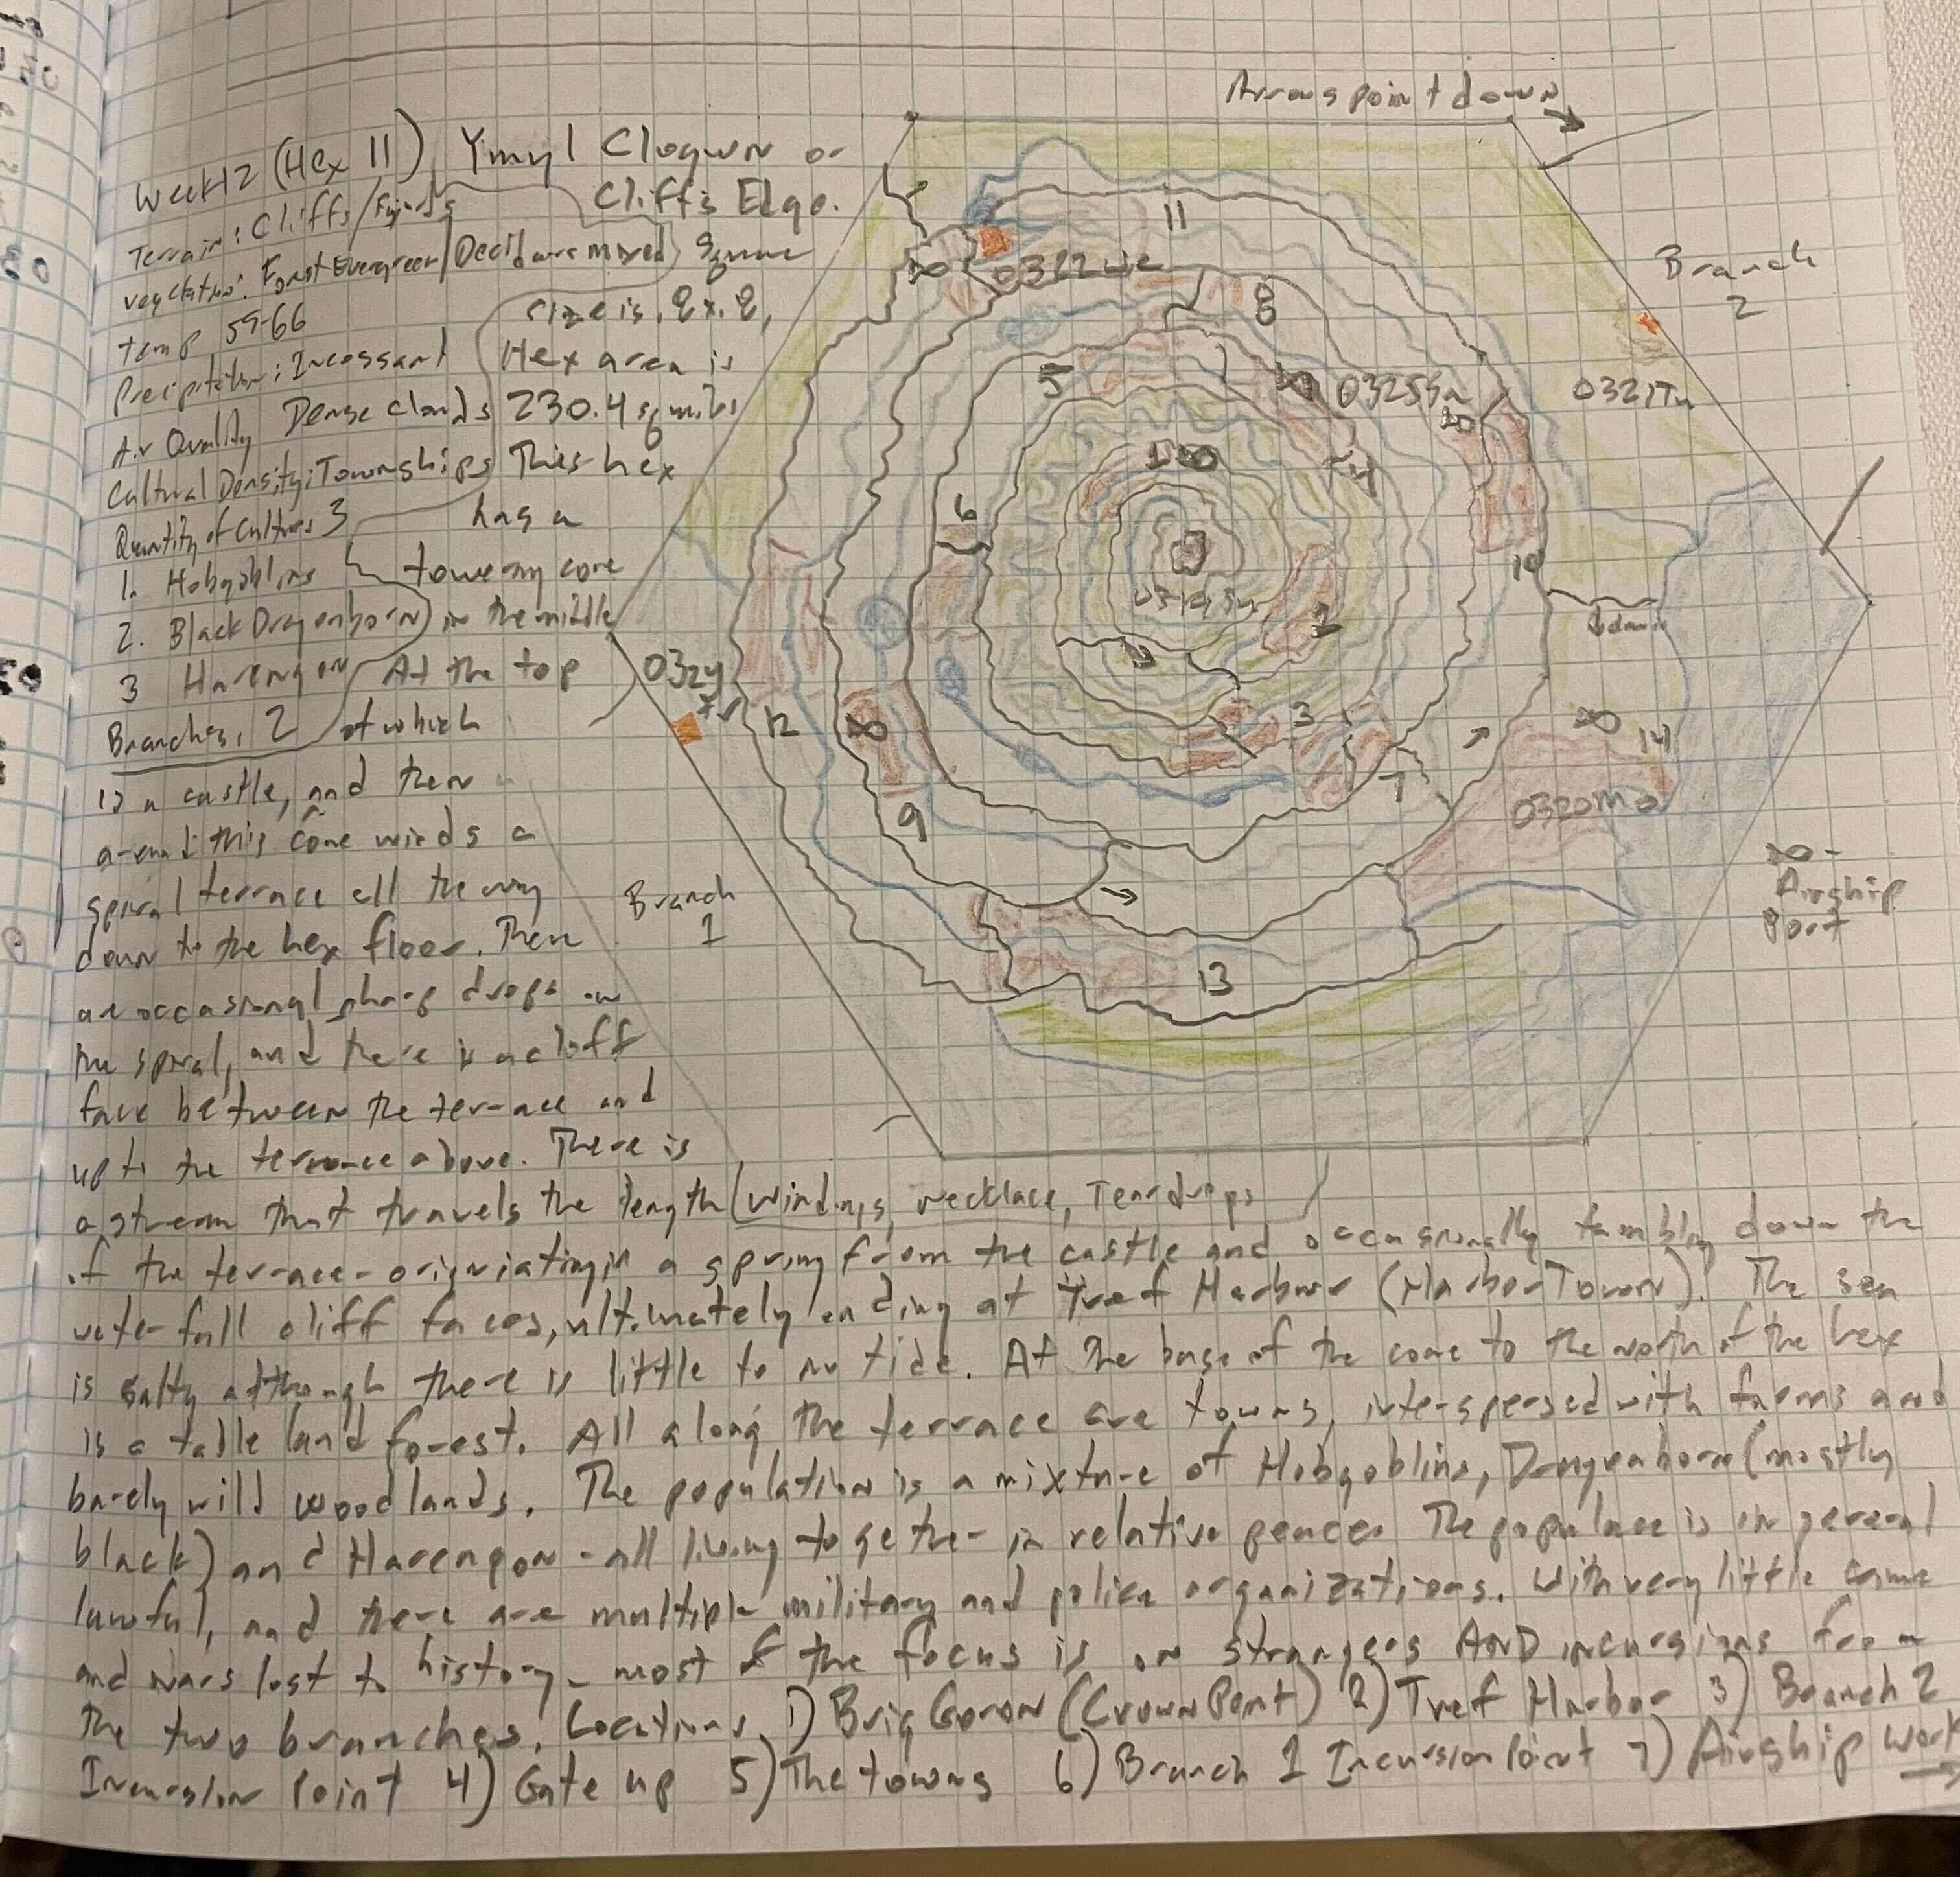 Arrows point down
Week 12 (Hex 11) Ymyl Clogwn or
Cliff's Edge.
Terrain: Cliffs/Fijords
Vegetation: Forest Evergreen/Decid are mixed) Square
size is .8x.8,
temp 55-66
Precipitation: Incessant
Hex area is
Air Quality Dense clouds 230.4 sq miles
Cultural Density: Townships This hex
Quantity of Cultures 3 has a
1. Hobgoblins towering core
2. Black Dragonborn in the middle
3 Harengon At the top
Branches: 2 of which
is a castle, and then
around this cone winds a
spiral terrace all the way
down to the hex floor. There
are occasional sharp drops in
the spiral, and there is a cliff
face between the terrace and
up to the terrace above. There is
a stream that travels the length (windings, necklace, Teardrops
of the terrace - originiating in a spring from the castle and occasionally tumbling down the
waterfall cliff faces, ultimately ending at Tref Harbwr (Harbor Town). The sea
is salty although there is little to no tide. At the base of the cone to the north of the hex
is a table land forest. All along the terrace are towns, interspersed with farms and
barely wild woodlands. The population is a mixture of Hobgoblins, Dragonborn (mostly
black) and Harengon - all living together in relative peace. The populace is in general
lawful, and there are multiple military and police organizations. With very little crime
and wars lost to history - most of the focus is on strangers AND incursions from
the two branches. Locations 1) Brig Goron (Crown Point) 2) Tref Harbor 3) Branch 2
Incursion Point 4) Gate up 5) The towns 6) Branch 1 Incursion Point 7) Airship work
11
0322We
8
Branch
2
5
0325Sa
10
0321Tu
1
4
6
10
0319Su
2
down
0324
Fr
12
3
14
7
0320Mo
9
Airship
Port
Branch
1
13